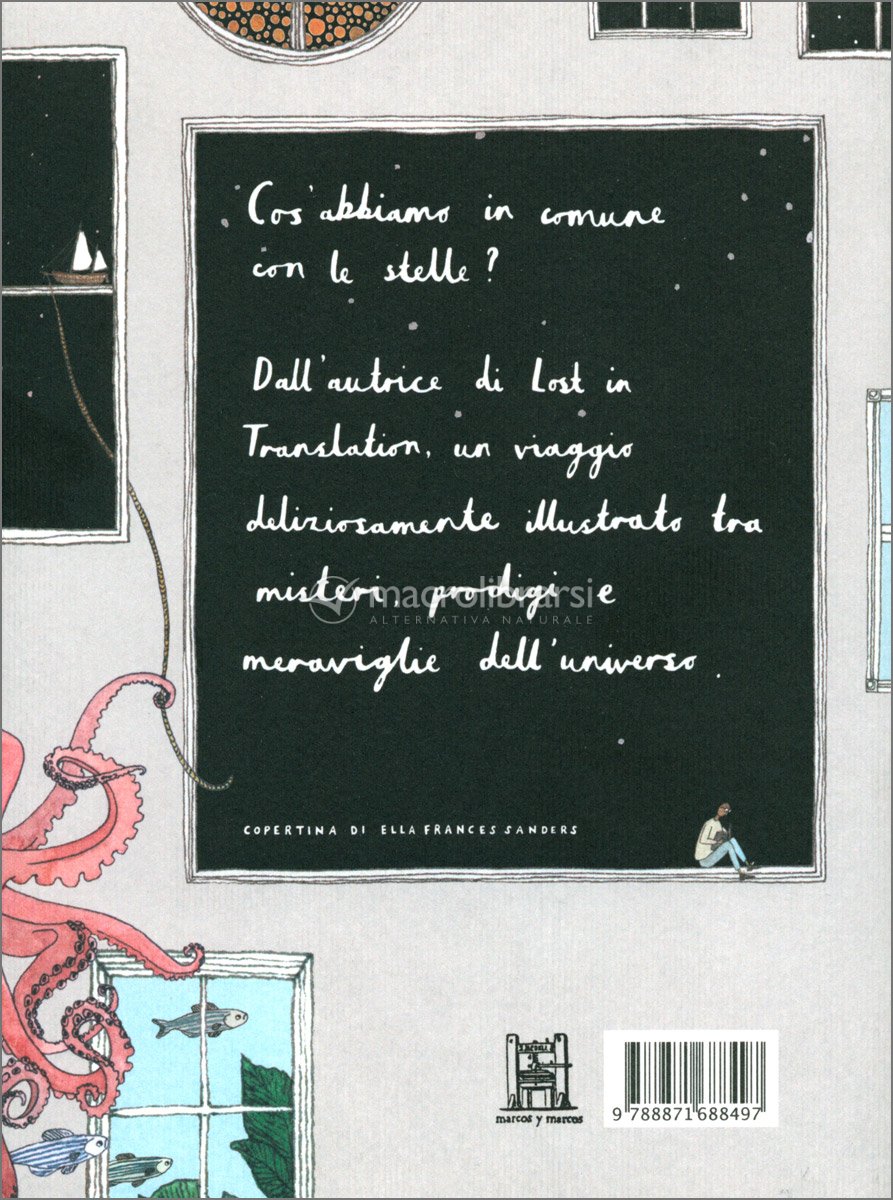 Cos'abbiamo in comune
con le stelle?
Dall'autrice di Lost in
Translation, un viaggio
deliziosamente illustrato tra
misteri, prodigi e
macrolibrarsi
ALTERNATIVA NATURALE
meraviglie dell'universo.
COPERTINA DI ELLA FRANCES SANDERS
marcos y marcos
9 788871 688497